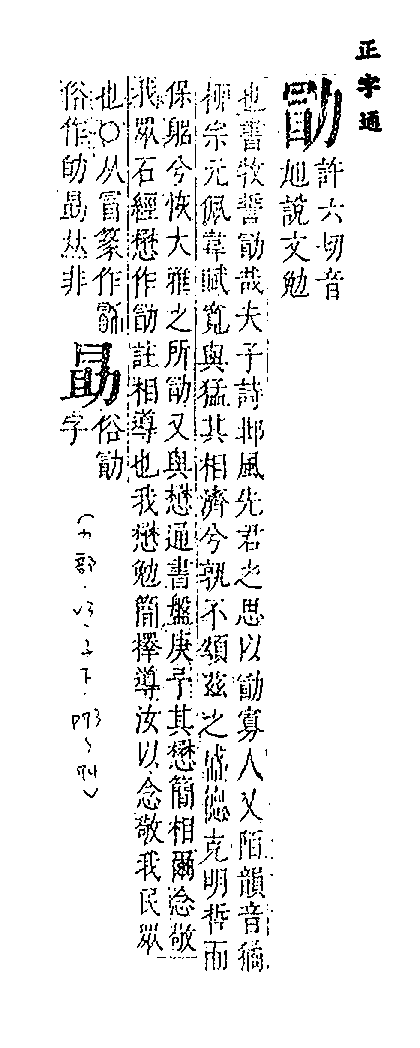 正字通
勖
許六切音
旭說文勉
也書牧誓勖哉夫子詩邶風先君之思以勖寡人又陌韻音
柳宗元佩韋賦寬與猛其相濟兮孰不頌茲之盛德克明哲而
保躬兮恢大雅之所勖又與懋通書盤庚予其懋簡相爾念敬
我眾石經懋作勖註相導也我懋勉簡擇導汝以念敬我民眾
也○从冒篆作
俗作勗𠀤非
勗
俗勖
字
(力部.子下.P73~74)